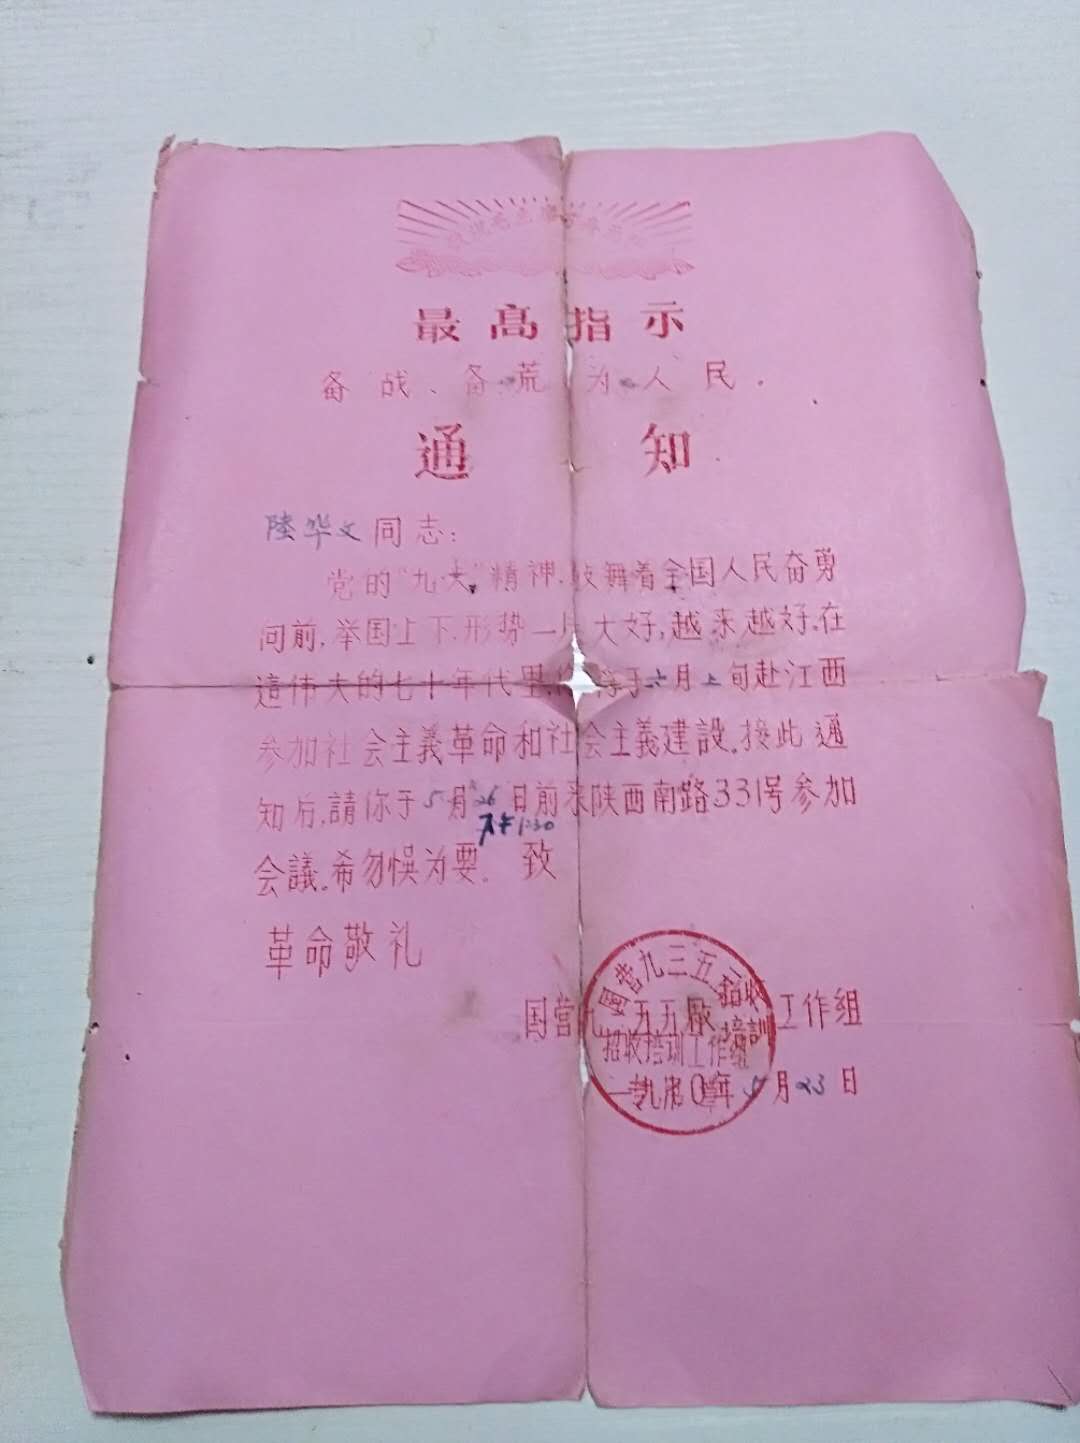 最高指示
备战、备荒、为人民.
通 知
陆华文同志:
党的"九·大"精神,鼓舞着全国人民奋勇
向前,举国上下,形势一片大好,越来越好.在
這伟大的七十年代里,于六月上旬赴江西
参加社会主義革命和社会主義建設.接此通
知后,請你于5月26日前来陕西南路331号参加
下午1:30
会議。希勿悞为要。 致
革命敬礼
国营九 五五厰 招收培訓 工作組
國营九三五
招收培训工作组
一九 0年5月23日